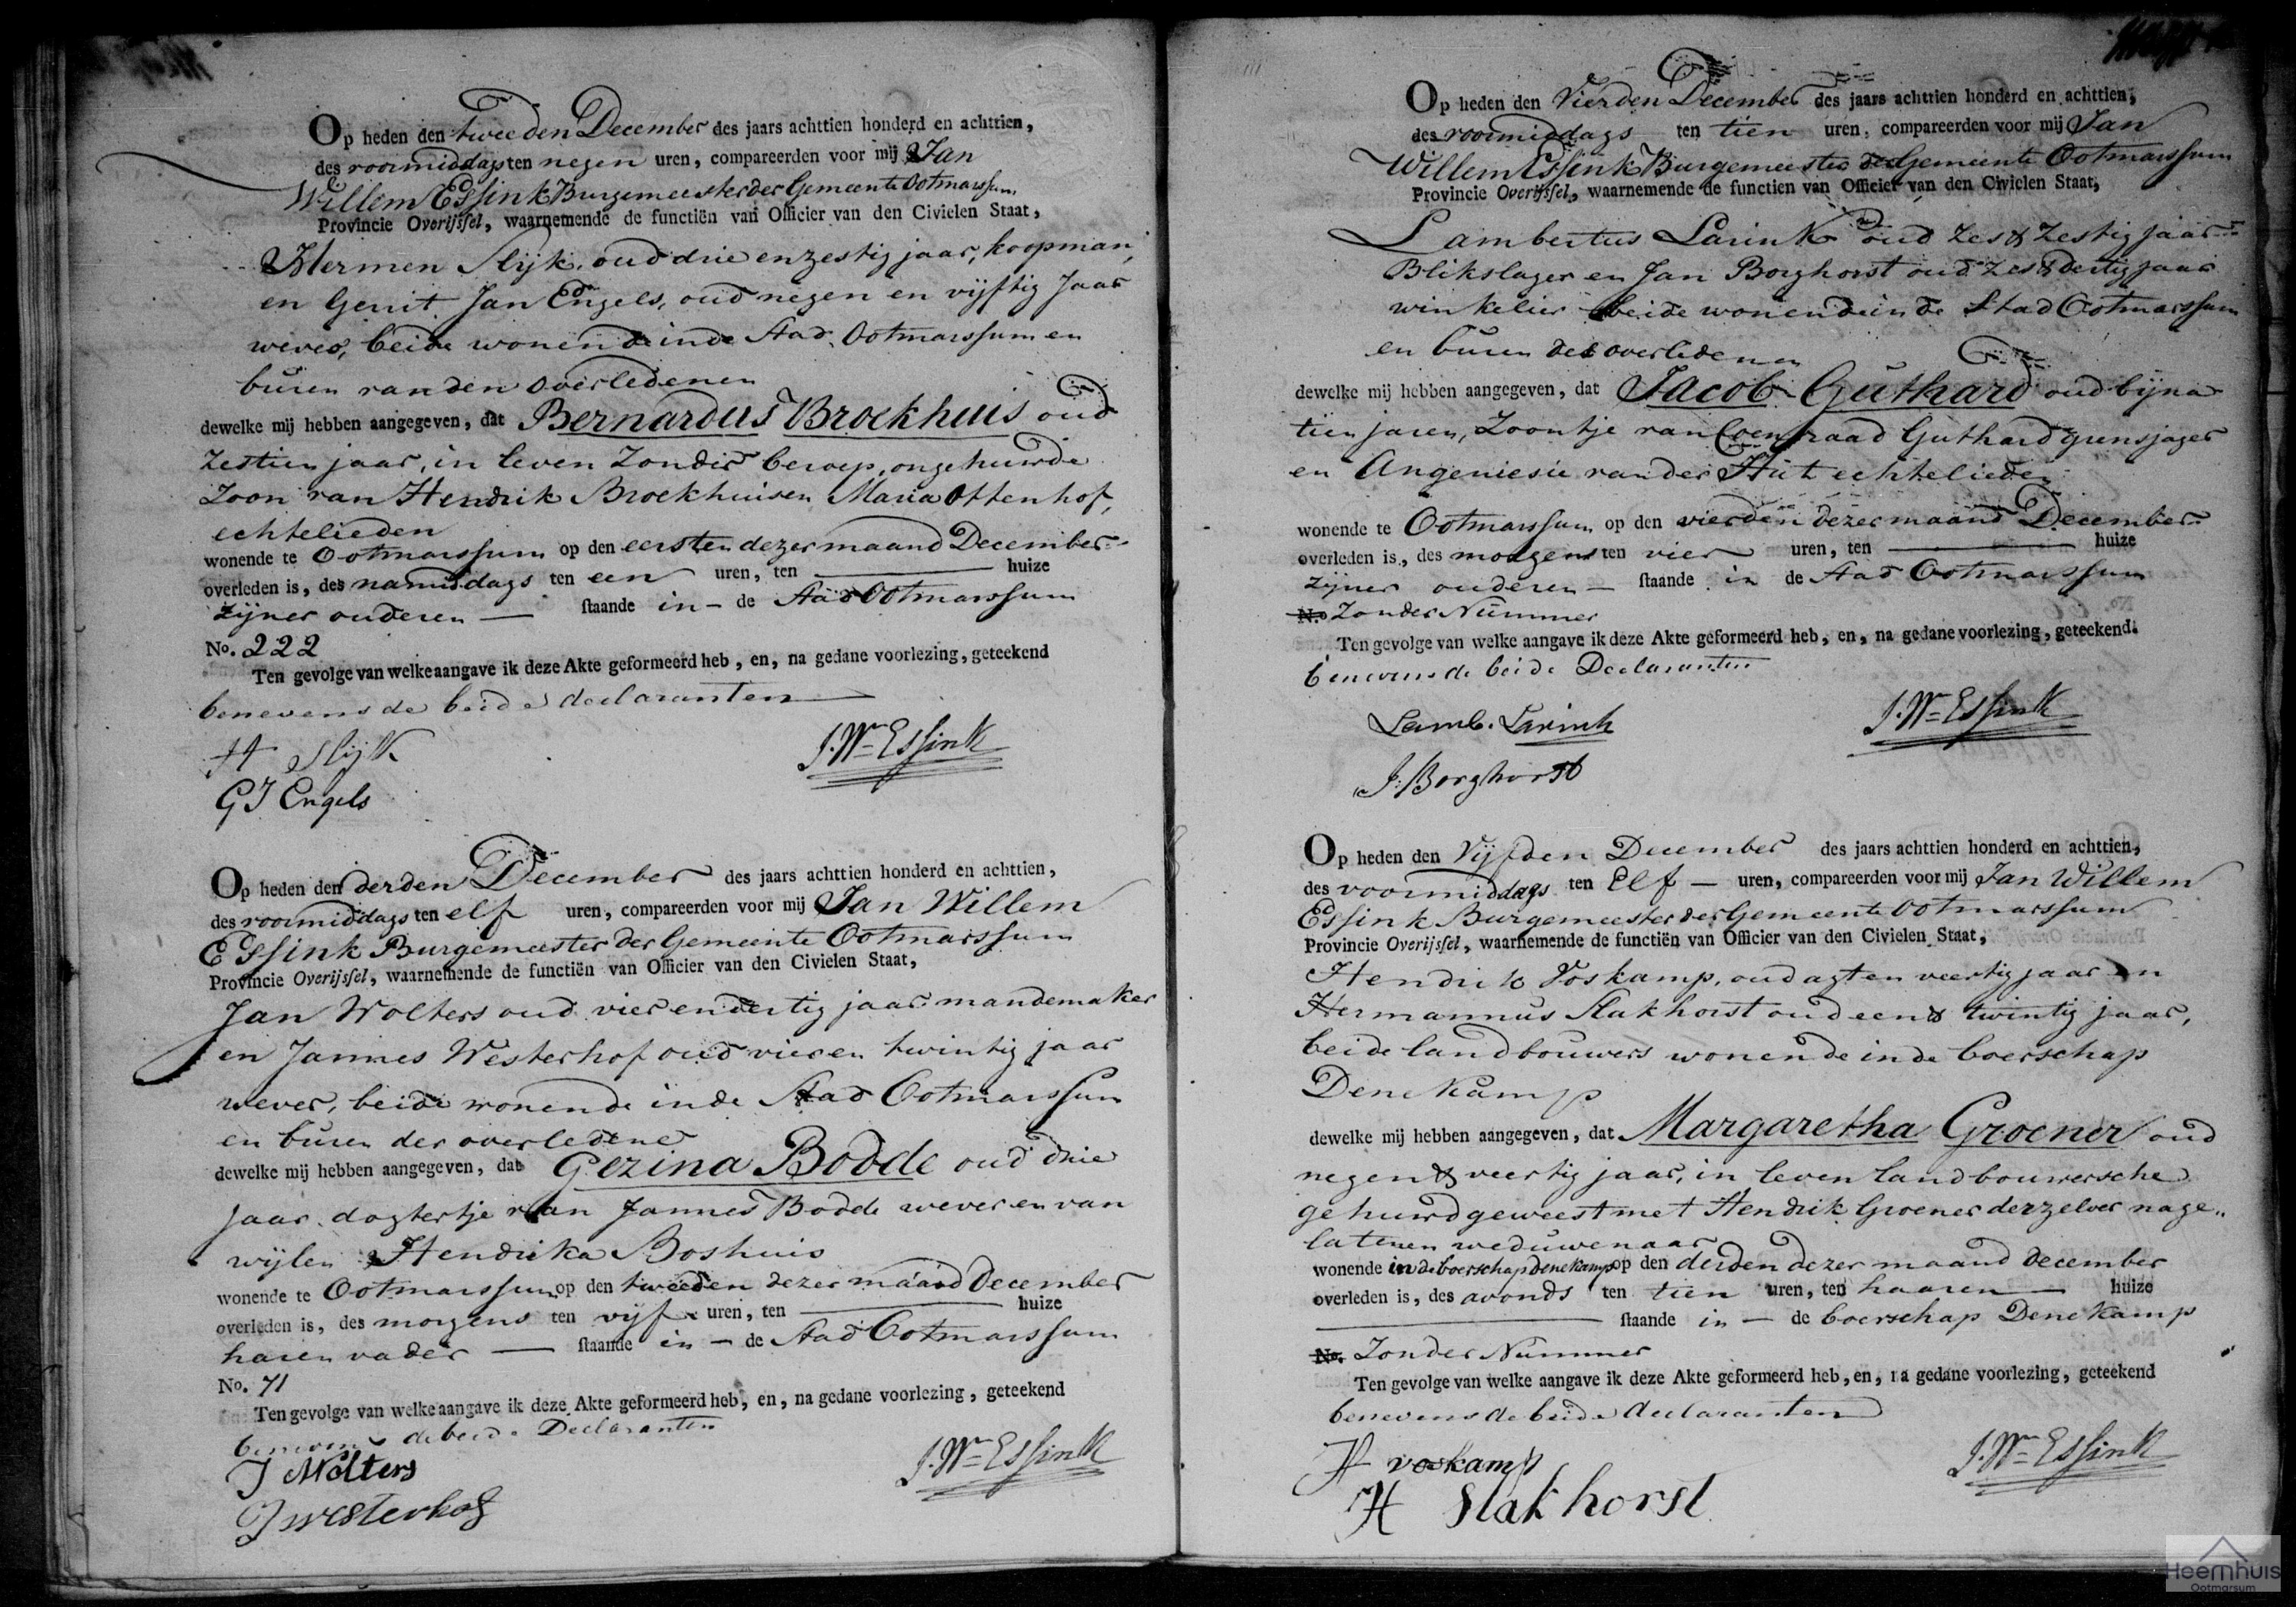 Op heden den tweeden December des jaars achttien honderd en achttien,
des voormiddags ten negen uren, compareerden voor mij Jan
Willem Essink Burgemeester der Gemeente Ootmarssum
Provincie Overijssel, waarnemende de functiën van Officier van den Civielen Staat,
Hermen Slijk, oud drie en zestig jaar, koopman,
en Gerrit Jan Engels, oud negen en vijftig Jaar
wever, beide wonende in de Stad Ootmarssum en
buren van den overledenen
dewelke mij hebben aangegeven, dat Bernardus Broekhuis oud
zestien jaar, in leven zonder beroep, ongehuwde
zoon van Hendrik Broekhuis en Maria Ottenhof,
echtelieden
wonende te Ootmarssum op den eersten dezer maand December
overleden is, des namiddags ten een uren, ten — huize
zijner ouderen — staande in — de Stad Ootmarssum
No. 222
Ten gevolge van welke aangave ik deze Akte geformeerd heb, en, na gedane voorlezing, geteekend
benevens de beide declaranten
H Slijk
J. Wm Essink
GJ Engels
Op heden den derden December des jaars achttien honderd en achttien,
des voormiddags ten elf uren, compareerden voor mij Jan Willem
Essink Burgemeester der Gemeente Ootmarssum
Provincie Overijssel, waarnemende de functiën van Officier van den Civielen Staat,
Jan Wolters oud vier en dertig jaar mandemaker
en Jannes Westerhof oud vier en twintig jaar
wever, beide wonende in de Stad Ootmarssum
en buren der overledene
dewelke mij hebben aangegeven, dat Gezina Bodde oud drie
jaar dogtertje van Jannes Bodde wever en van
wijlen Hendrika Boshuis
wonende te Ootmarssum op den tweeden dezer maand December
overleden is, des morgens ten vijf uren, ten — huize
haren vader — staande in — de Stad Ootmarssum
No. 71
Ten gevolge van welke aangave ik deze Akte geformeerd heb, en, na gedane voorlezing, geteekend
benevens de beide Declaranten
J Wolters
J. Wm Essink
J westerhof
Op heden den Vierden December des jaars achttien honderd en achttien,
des voormiddags ten tien uren, compareerden voor mij Jan
Willem Essink Burgemeester der Gemeente Ootmarssum
Provincie Overijssel, waarnemende de functien van Officier van den Civielen Staat,
Lambertus Larink oud zes & zestig jaar
Blikslager en Jan Borghorst oud zes & dertig jaar
winkelier beide wonende in de Stad Ootmarssum
en buren des overledenen
dewelke mij hebben aangegeven, dat Jacob Guthard oud bijna
tien jaren, Zoontje van Coenraad Guthard grensjager
en Angeniesie van der Hut echtelieden
wonende te Ootmarssum op den vierden dezer maand December
overleden is, des morgens ten vier uren, ten — huize
zijner ouderen — staande in de Stad Ootmarssum
No. Zonder Nummer
Ten gevolge van welke aangave ik deze Akte geformeerd heb, en, na gedane voorlezing, geteekend.
benevens de beide Declaranten
Lamb. Larink
J. Wm Essink
J. Borghorst
Op heden den Vijfden December des jaars achttien honderd en achttien,
des voormiddags ten Elf — uren, compareerden voor mij Jan Willem
Essink Burgemeester der Gemeente Ootmarssum
Provincie Overijssel, waarnemende de functiën van Officier van den Civielen Staat,
Hendrik Voskamp, oud agt en veertig jaar en
Hermannus Slakhorst oud een & twintig jaar,
beide landbouwers wonende in de boerschap
Denekamp
dewelke mij hebben aangegeven, dat Margaretha Groener oud
negen & veertig jaar, in leven landbouwersche
gehuwd geweest met Hendrik Groener derzelver nage„
laten weduwenaar
wonende in de boerschap Denekamp op den derden dezer maand december
overleden is, des avonds ten tien uren, ten haaren — huize
— staande in — de boerschap Denekamp
No. Zonder Nummer
Ten gevolge van welke aangave ik deze Akte geformeerd heb, en, na gedane voorlezing, geteekend
benevens de beide declaranten
H voskamp
J. Wm Essink
H Slakhorst
Heemhuis
Ootmarsum